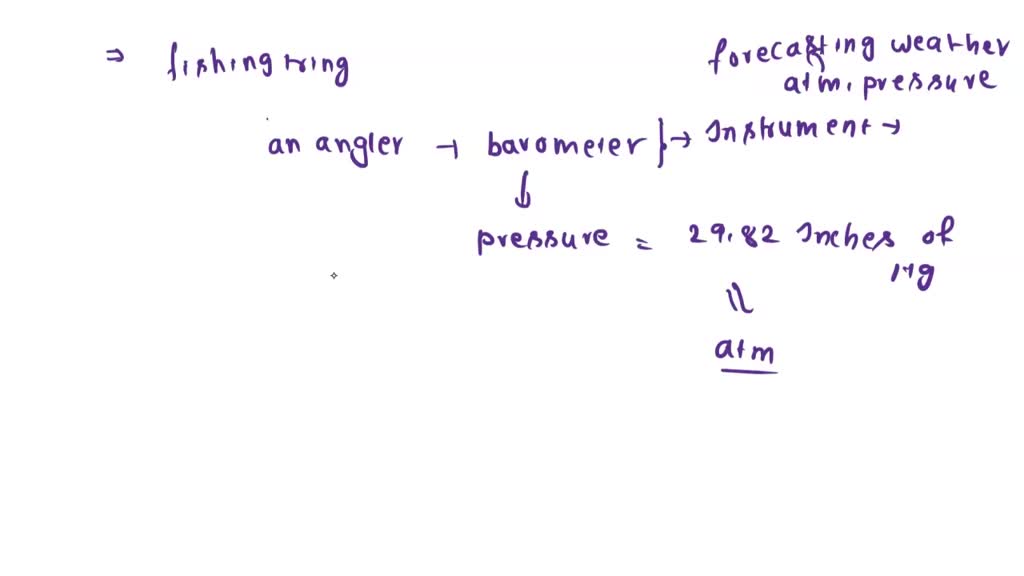 ⇒ fishing tring
forecasting weather
atm. pressure
an angler → barometer } → Instrument →
↓
pressure = 29.82 Inches of
Hg
||
atm